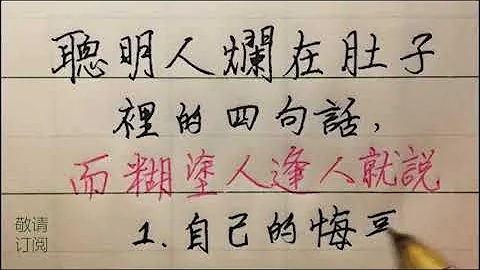 聰明人爛在肚子
裡的四句話，
而糊塗人逢人就說
1.自己的悔
敬请
订阅